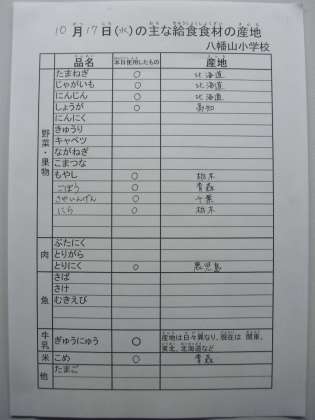 10月17日(水)の主な給食食材の産地
八幡山小学校
品名 本日使用したもの 産地
野菜・果物
たまねぎ ○ 北海道
じゃがいも ○ 北海道
にんじん ○ 北海道
しょうが ○ 高知
にんにく
きゅうり
キャベツ
ながねぎ
こまつな
もやし ○ 栃木
ごぼう ○ 青森
さやいんげん ○ 千葉
にら ○ 栃木
肉
ぶたにく
とりがら
とりにく ○ 鹿児島
魚
さば
さけ
むきえび
牛乳 ぎゅうにゅう ○ 産地は日々異なり、現在は 関東、
東北、北海道など
米 こめ ○ 青森
他 たまご